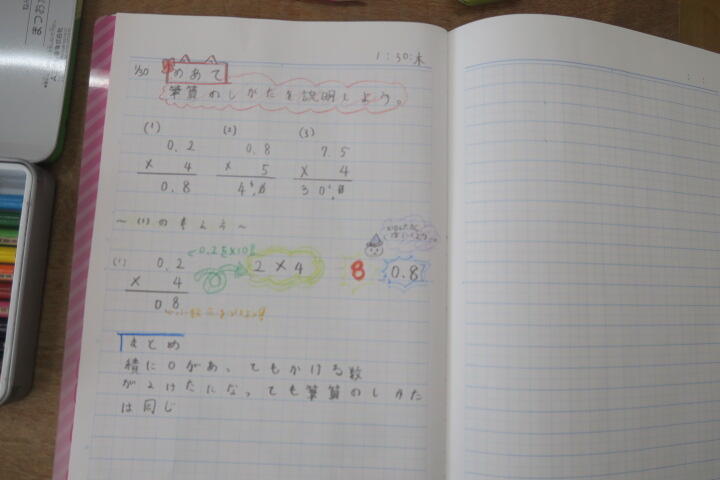 1:30:木
1/30 めあて
筆算のしかたを説明しよう。
(1) (2) (3)
0.2 0.8 7.5
× 4 × 5 × 4
0.8 4.0 30.0
~(1)の考え~
(1) 0.2
× 4
0.8
0.2を×10
2×4
8
0.8
まとめ
積に0があってもかける数
が2けたになっても筆算のしかた
は同じ